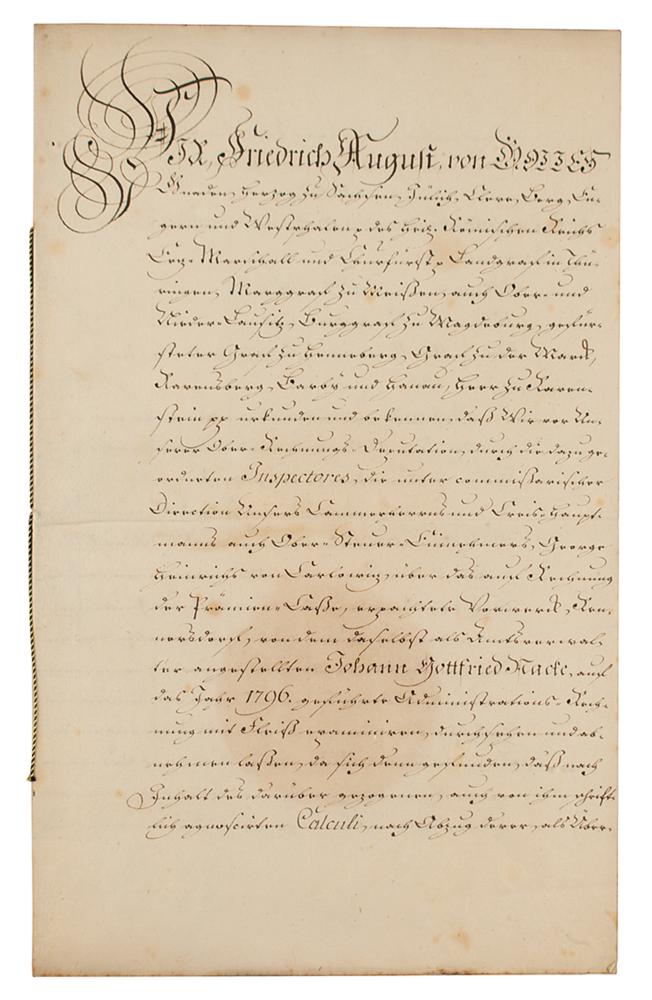 WIR, Friedrich August, von GOTTES
Gnaden, Herzog zu Sachsen, Jülich, Cleve, Berg, En-
gern und Westphalen, des Heil. Römischen Reichs
Erz-Marschall und Churfürst, Landgraf in Thü-
ringen, Marggraf zu Meißen, auch Ober- und
Nieder-Lausitz, Burggraf zu Magdeburg, gefür-
steter Graf zu Henneberg, Graf zu der Marck,
Ravensberg, Barby und Hanau, Herr zu Raven-
stein pp urkunden und bekennen, daß Wir vor Un-
serer Ober-Rechnungs-Deputation, durch die dazu ge-
ordneten Inspectores, die unter commissarischer
Direction Unsers Cammerherrns und Creis-Haupt-
manns auch Ober-Steuer-Einnehmers, George
Heinrichs von Carlowitz, über das auf Rechnung
der Prämien-Casse, erpachtete Vorwerck, Ren-
nersdorf, von dem daselbst als Amtsverwal-
ter angestellten Johann Gottfried Nacke, auf
das Jahr 1796. geführte Administrations-Rech-
nung mit Fleiß examiniren, durchsehen und ab-
nehmen laßen, da sich denn gefunden, daß nach
Inhalt des darüber gezogenen, auch von ihm schrift-
lich agnoscirten Calculi, nach Abzug derer, als Uber-